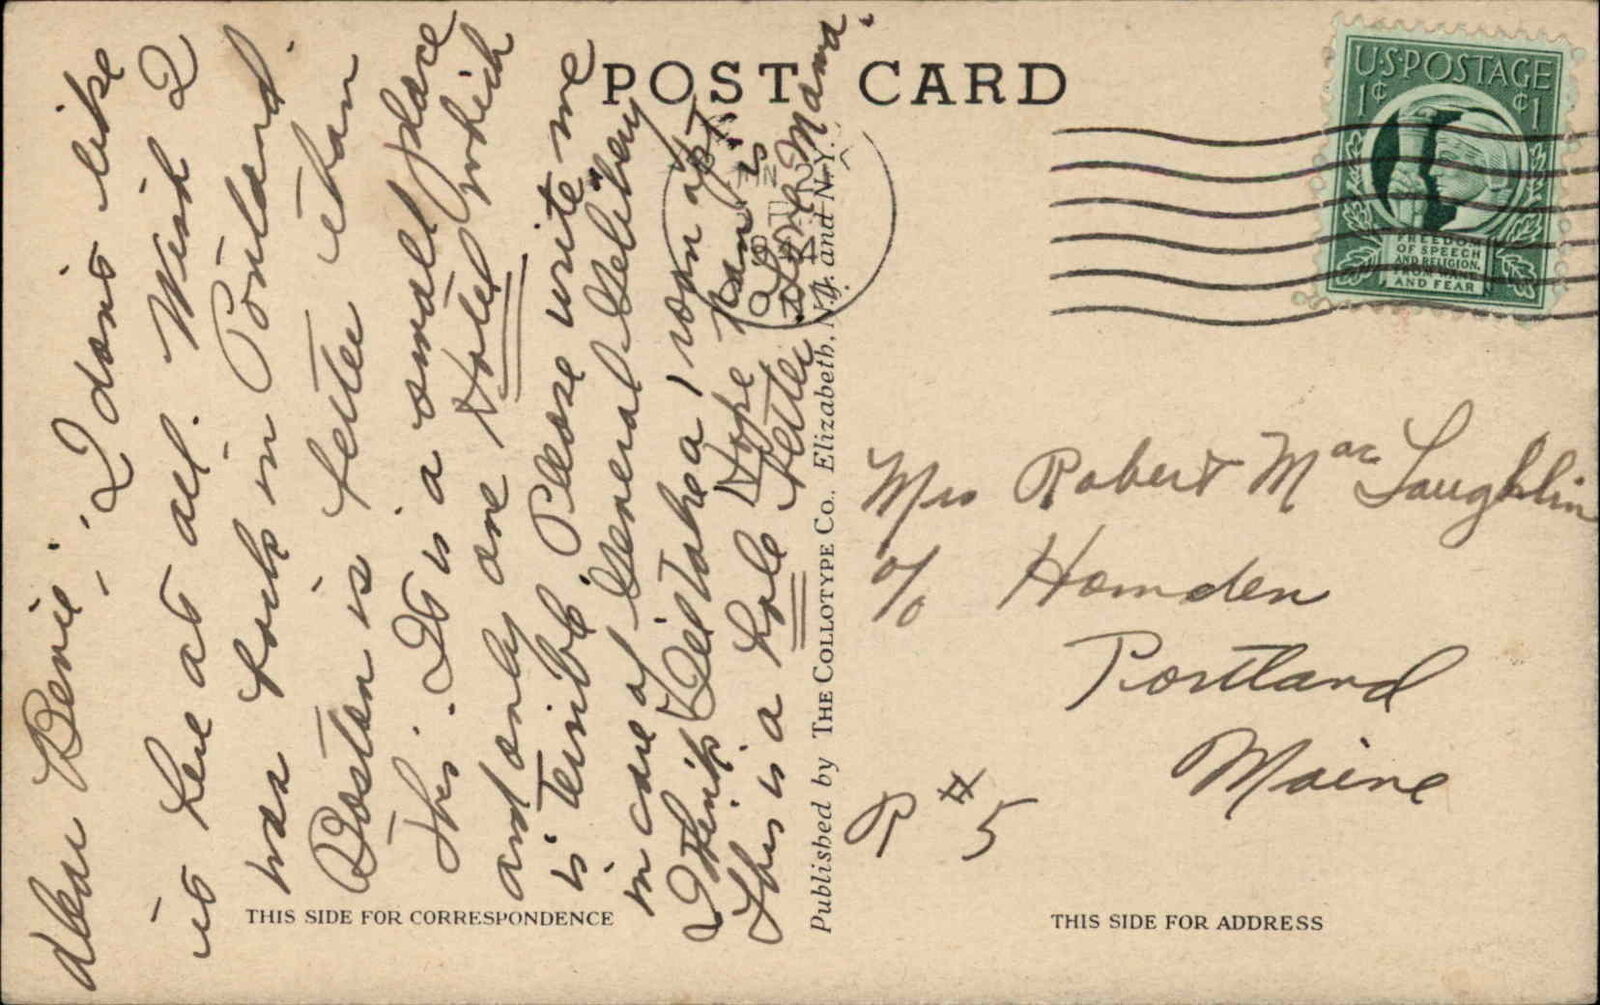 POST CARD
U.S. POSTAGE
1¢ ¢1
FREEDOM
OF SPEECH
AND RELIGION,
FROM WANT
AND FEAR
Dear Benie - I dont like
it here at all. Wish I
was back in Portland.
Boston is better than
this. It is a small place
and only one Hotel which
is terrible. Please write me
in care of "General Delibery"
I think Bel take a room apt
This is a hole Hope Pam is
better
Love Mama.
Published by THE COLLOTYPE CO., Elizabeth, N.J. and N.Y.
Mrs Robert MacLaughlin
c/o Hamden
Portland
Maine
R #5
THIS SIDE FOR CORRESPONDENCE
THIS SIDE FOR ADDRESS